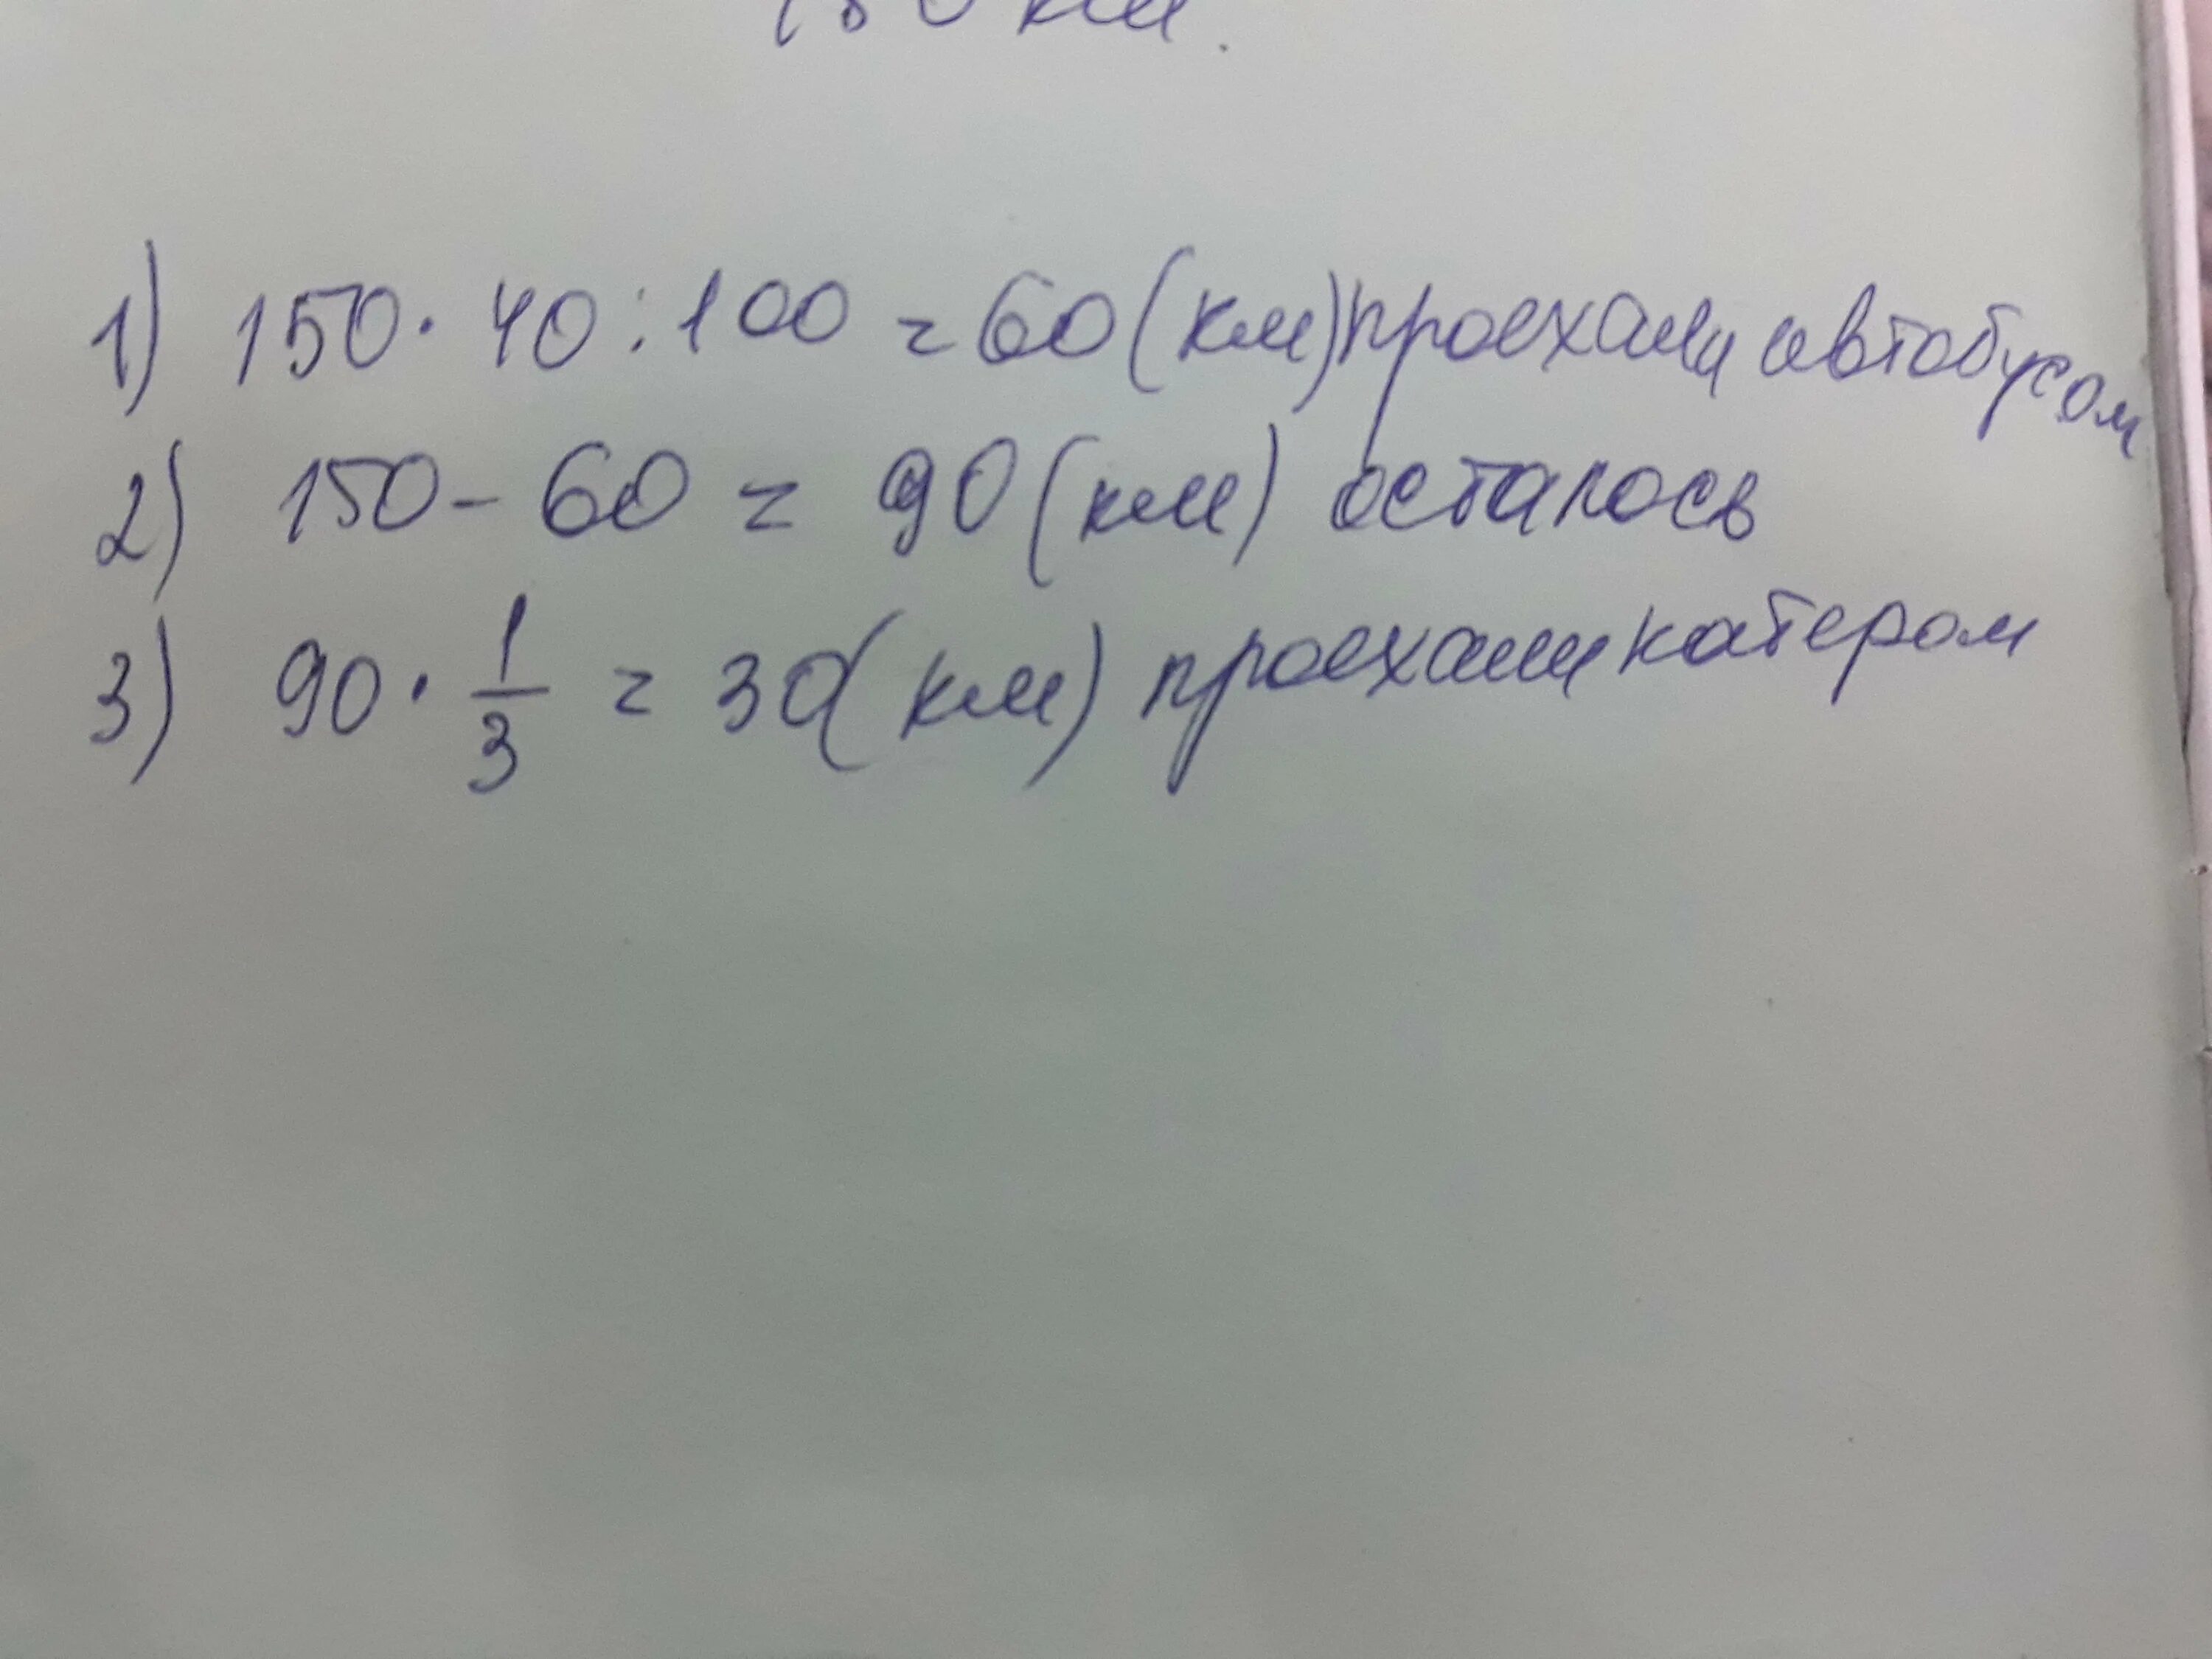 150 км.
1) 150 · 40 : 100 = 60 (км) проехали автобусом
2) 150 - 60 = 90 (км) осталось
3) 90 · 1/3 = 30 (км) проехали катером